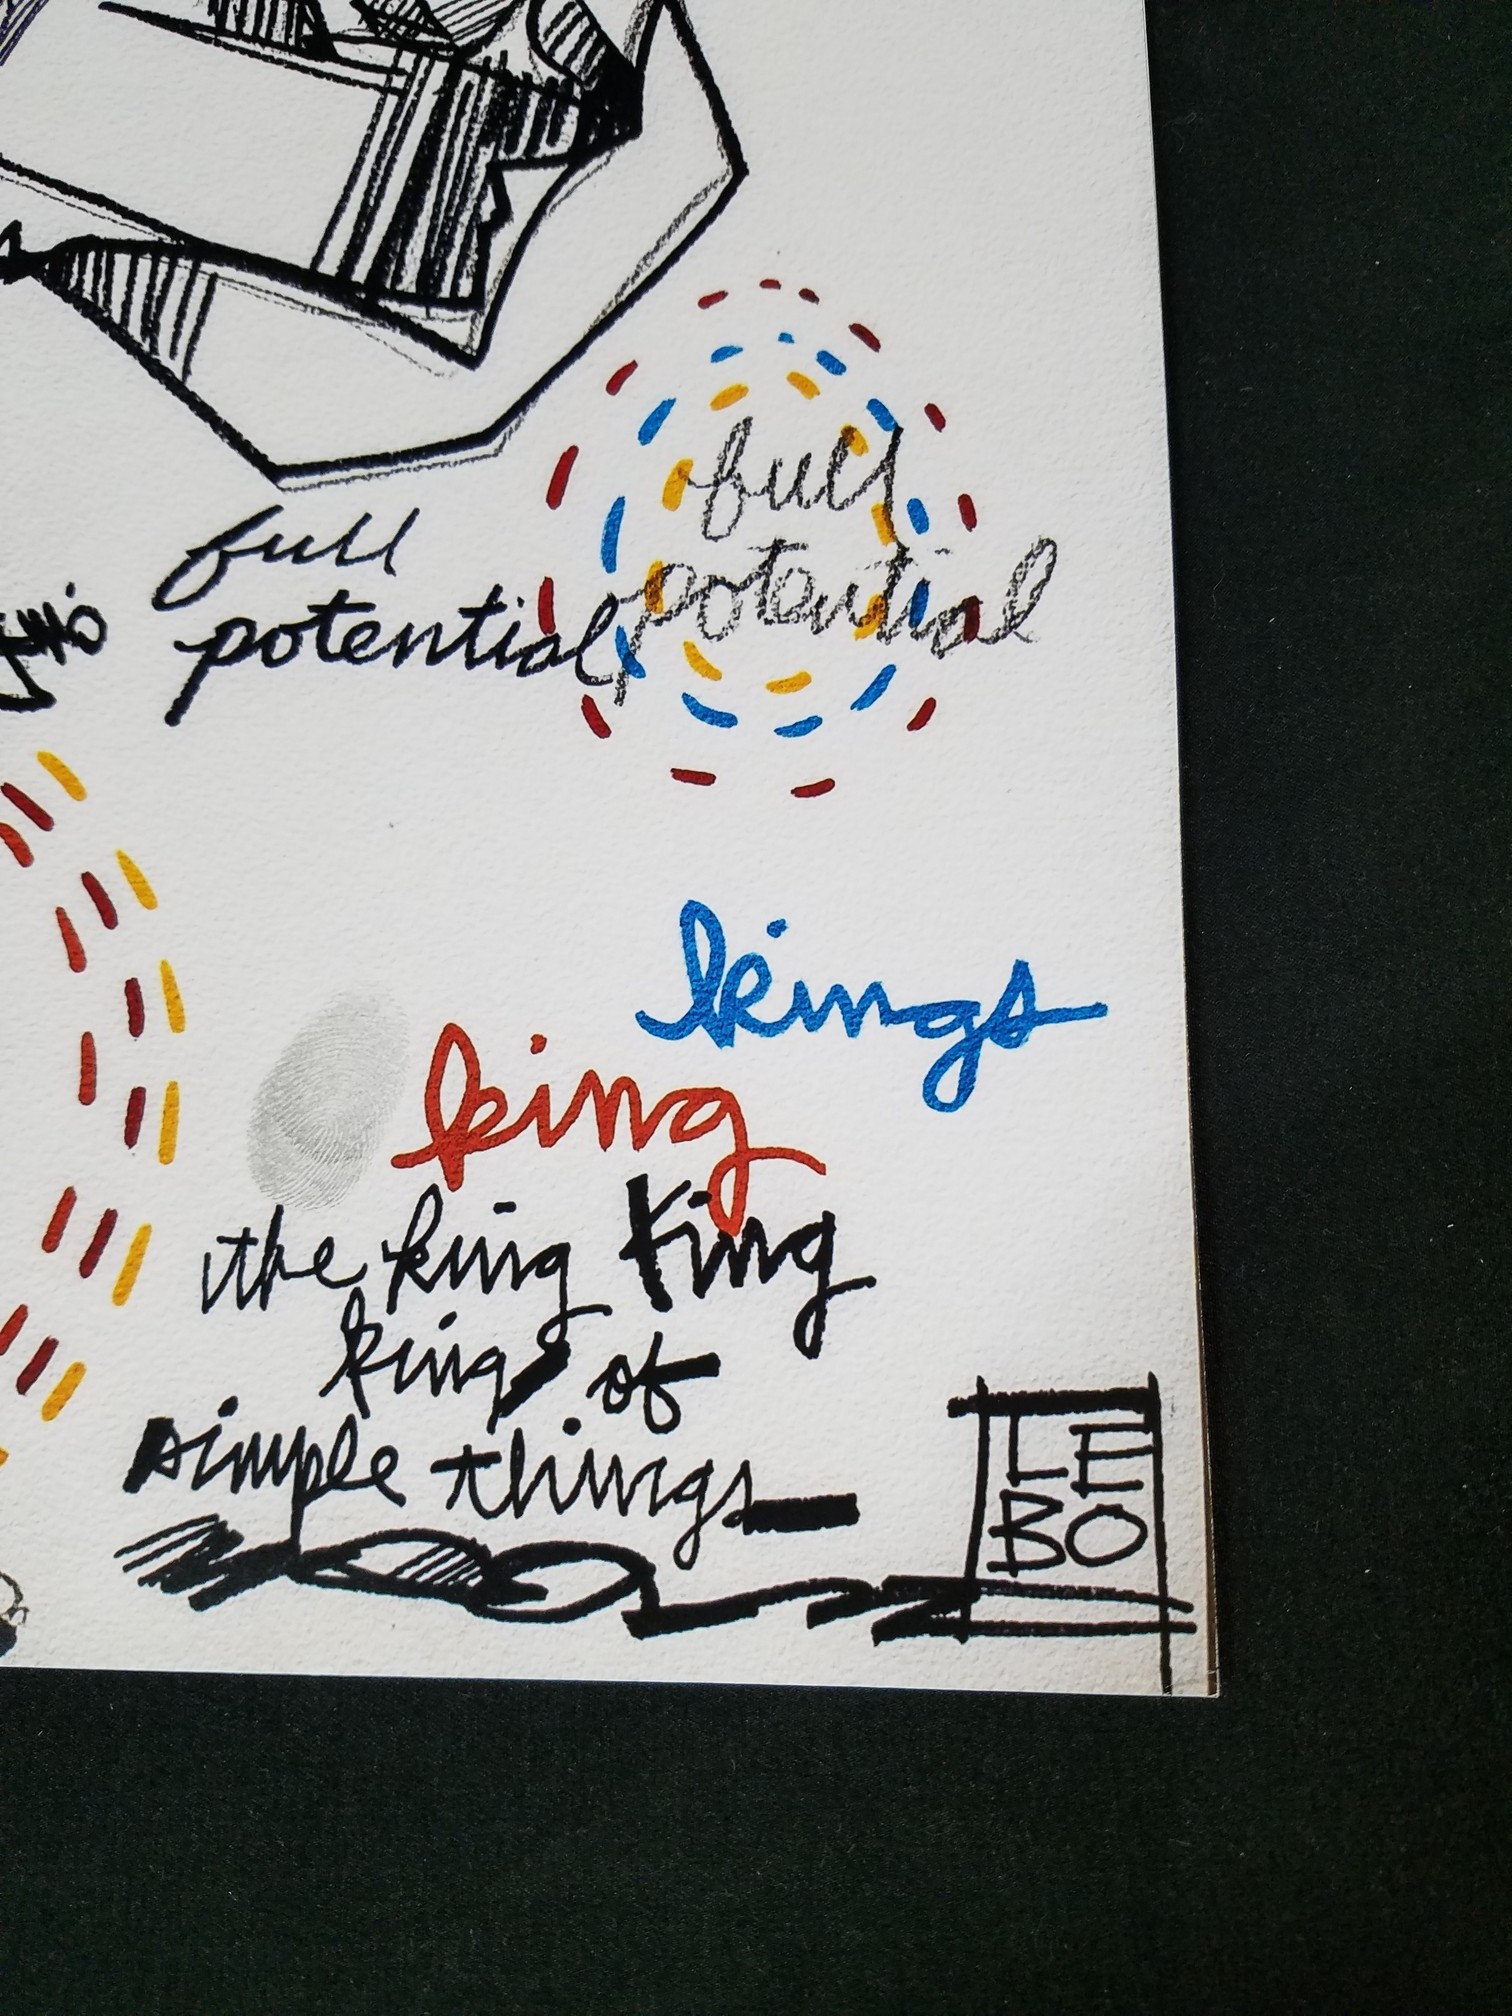 full
potential
full
potential
kings
king
the king King
king of
simple things
LE
BO